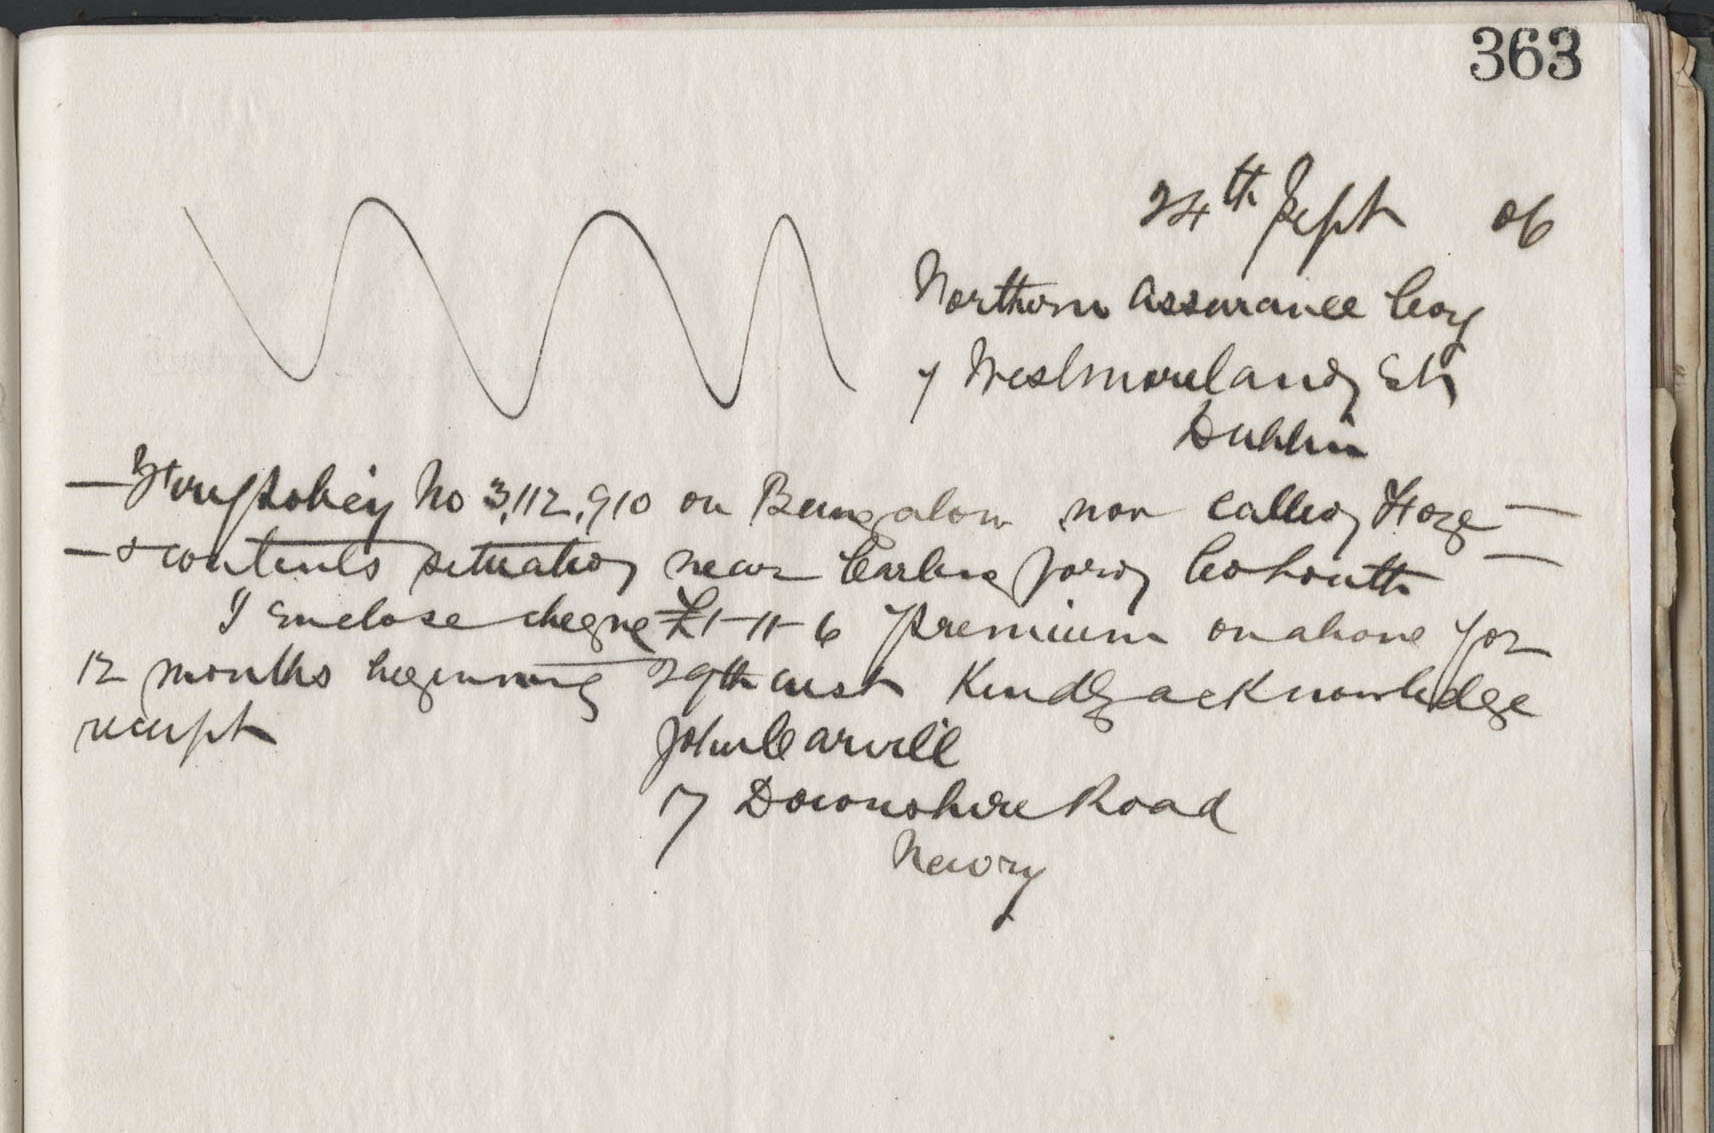 363
24th Sept 06
Northern Assurance Coy
7 Westmoreland St
Dublin
Your Policy No 3,112,910 on Bungalow now called
& contents situated near Carling ford Co Louth
I enclose cheque £1-11-6 premium on above for
12 months beginning 29th inst Kindly acknowledge
receipt
John Carvill
17 Devonshire Road
Newry